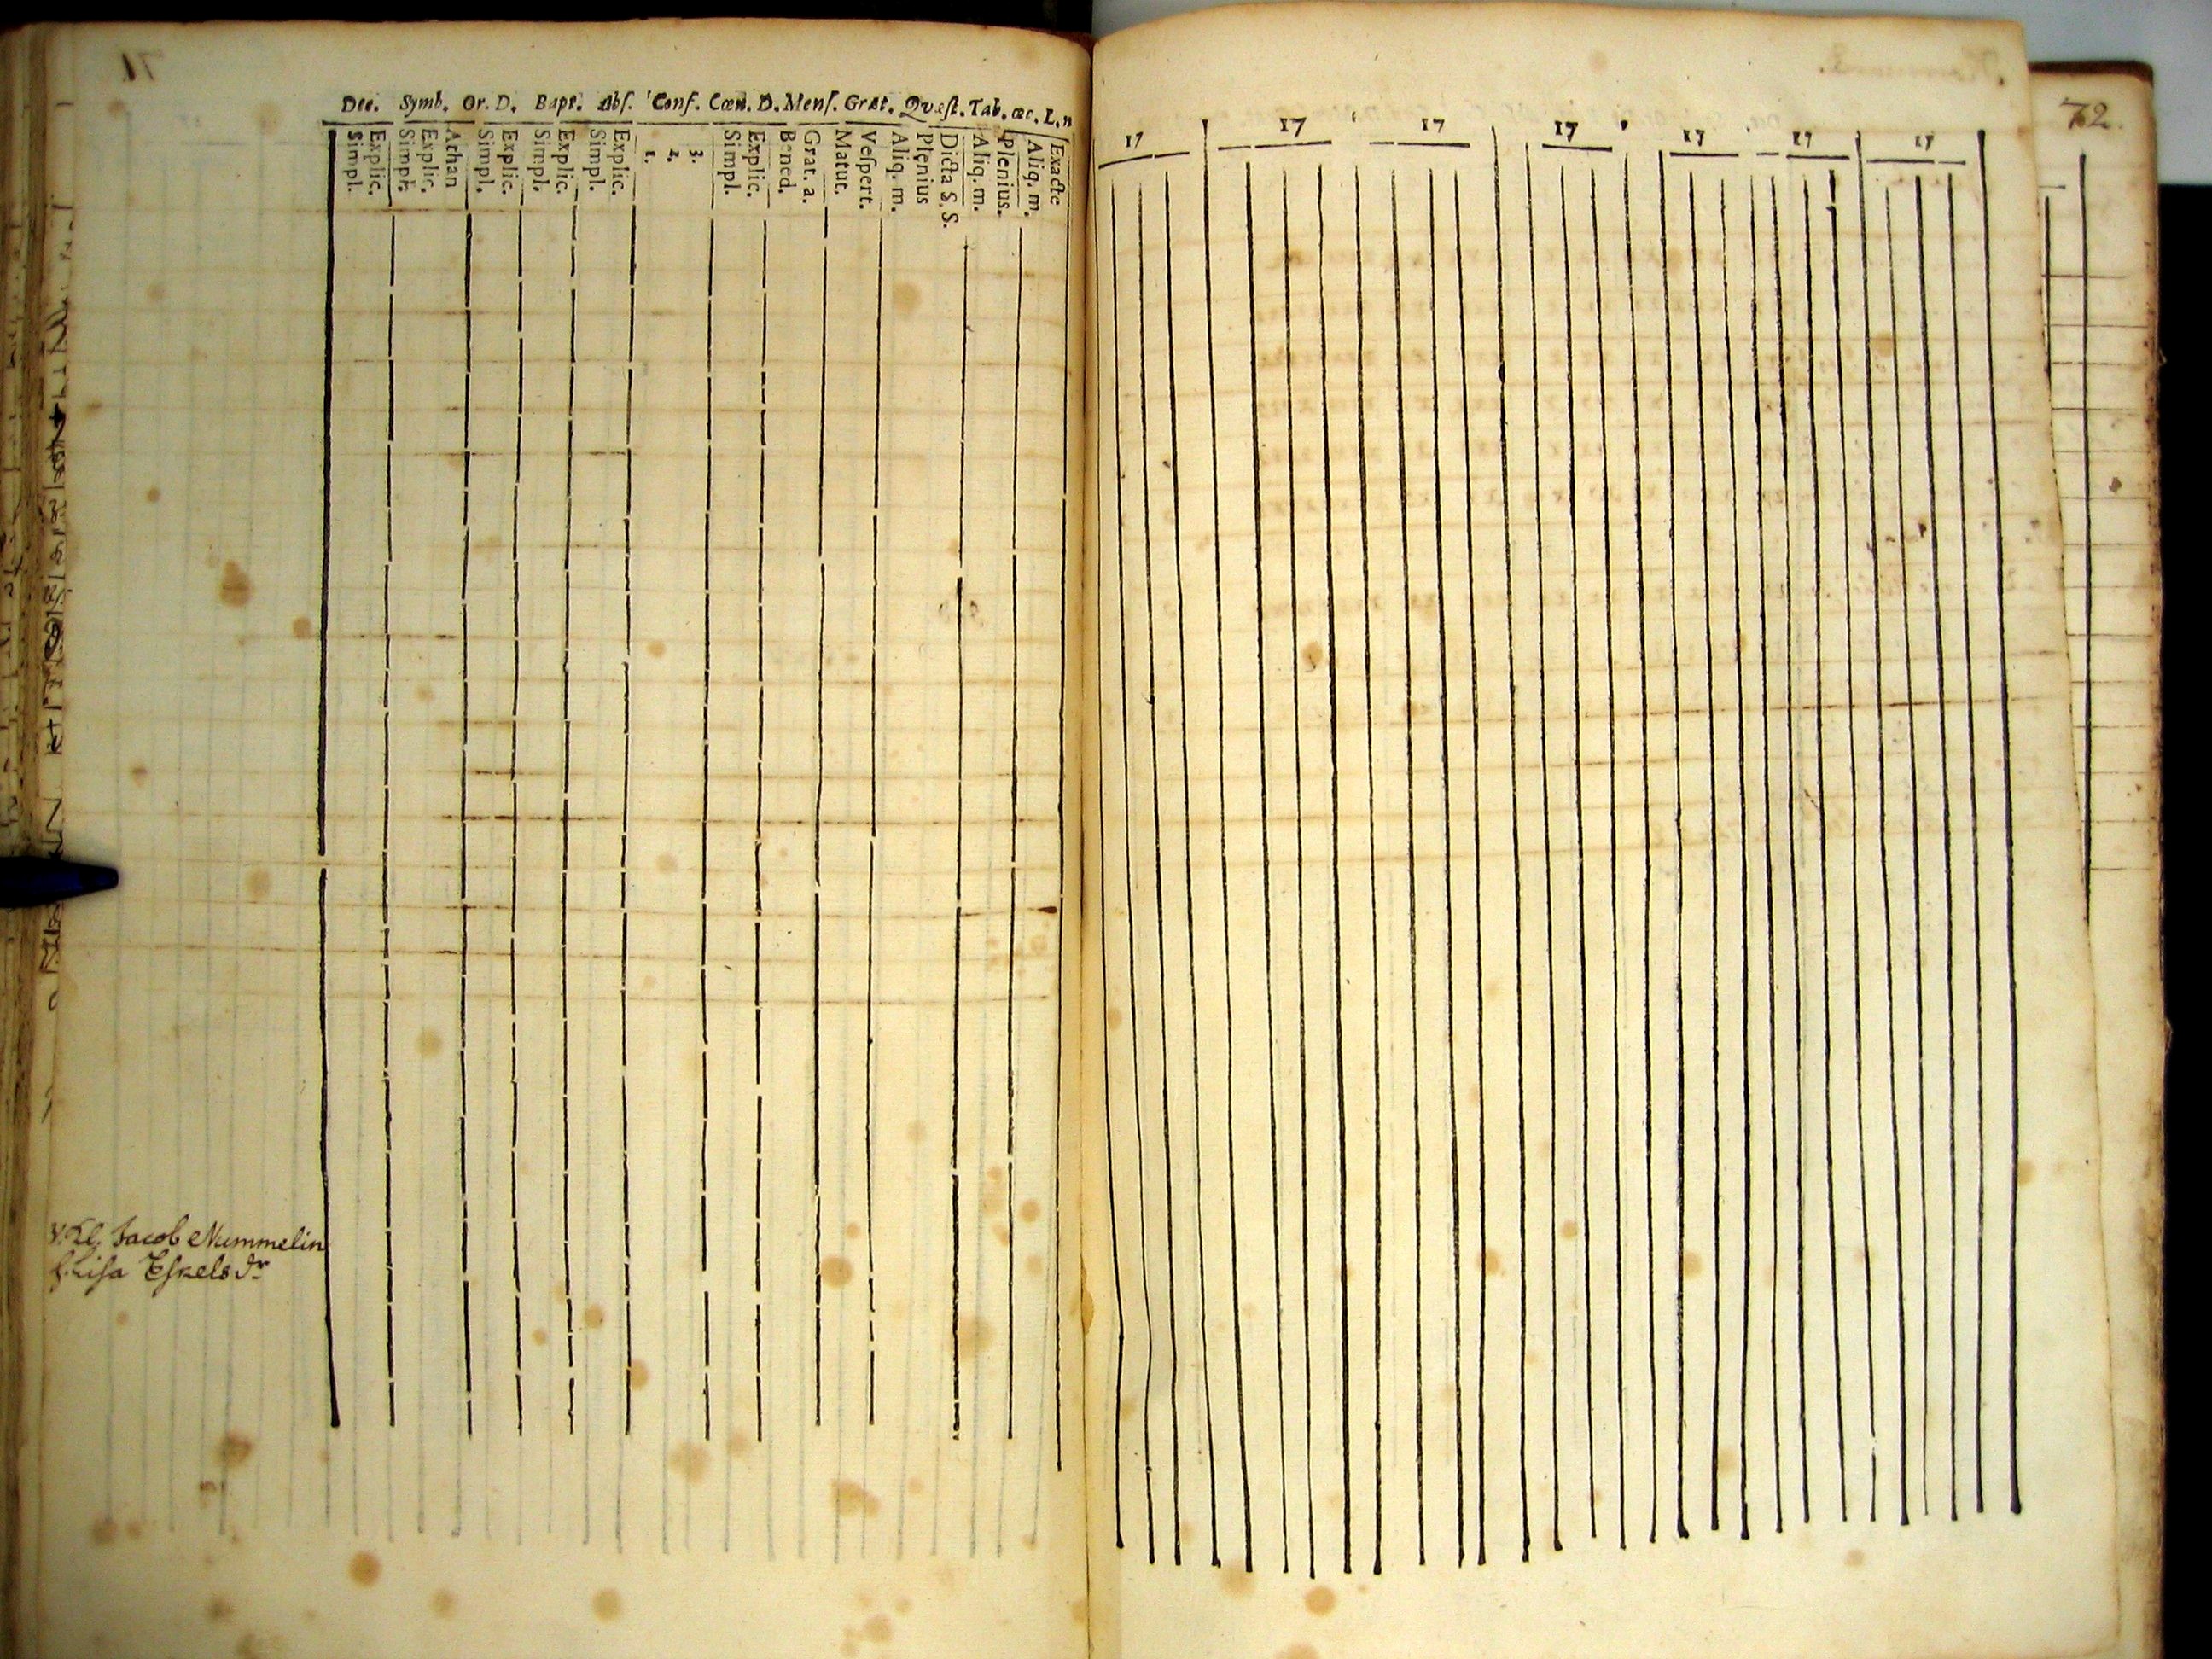 Dec. Symb. Or. D. Bapt. Abſ. Conf. Cœn. D. Menſ. Grat. Quæſt. Tab. œc. L. n
Simpl.
Explic.
Simpl.
Explic.
Athan
Simpl.
Explic.
Simpl.
Explic.
Simpl.
Explic.
1.
2.
3.
Simpl.
Explic.
Bened.
Grat. a.
Matut.
Veſpert.
Aliq. m.
Plenius
Dicta S. S.
Aliq. m.
Plenius.
Aliq. m.
Exacte
Jacob Nummelin
Liſa Eſkels dr
17 17 17 17 17 17 17
72.